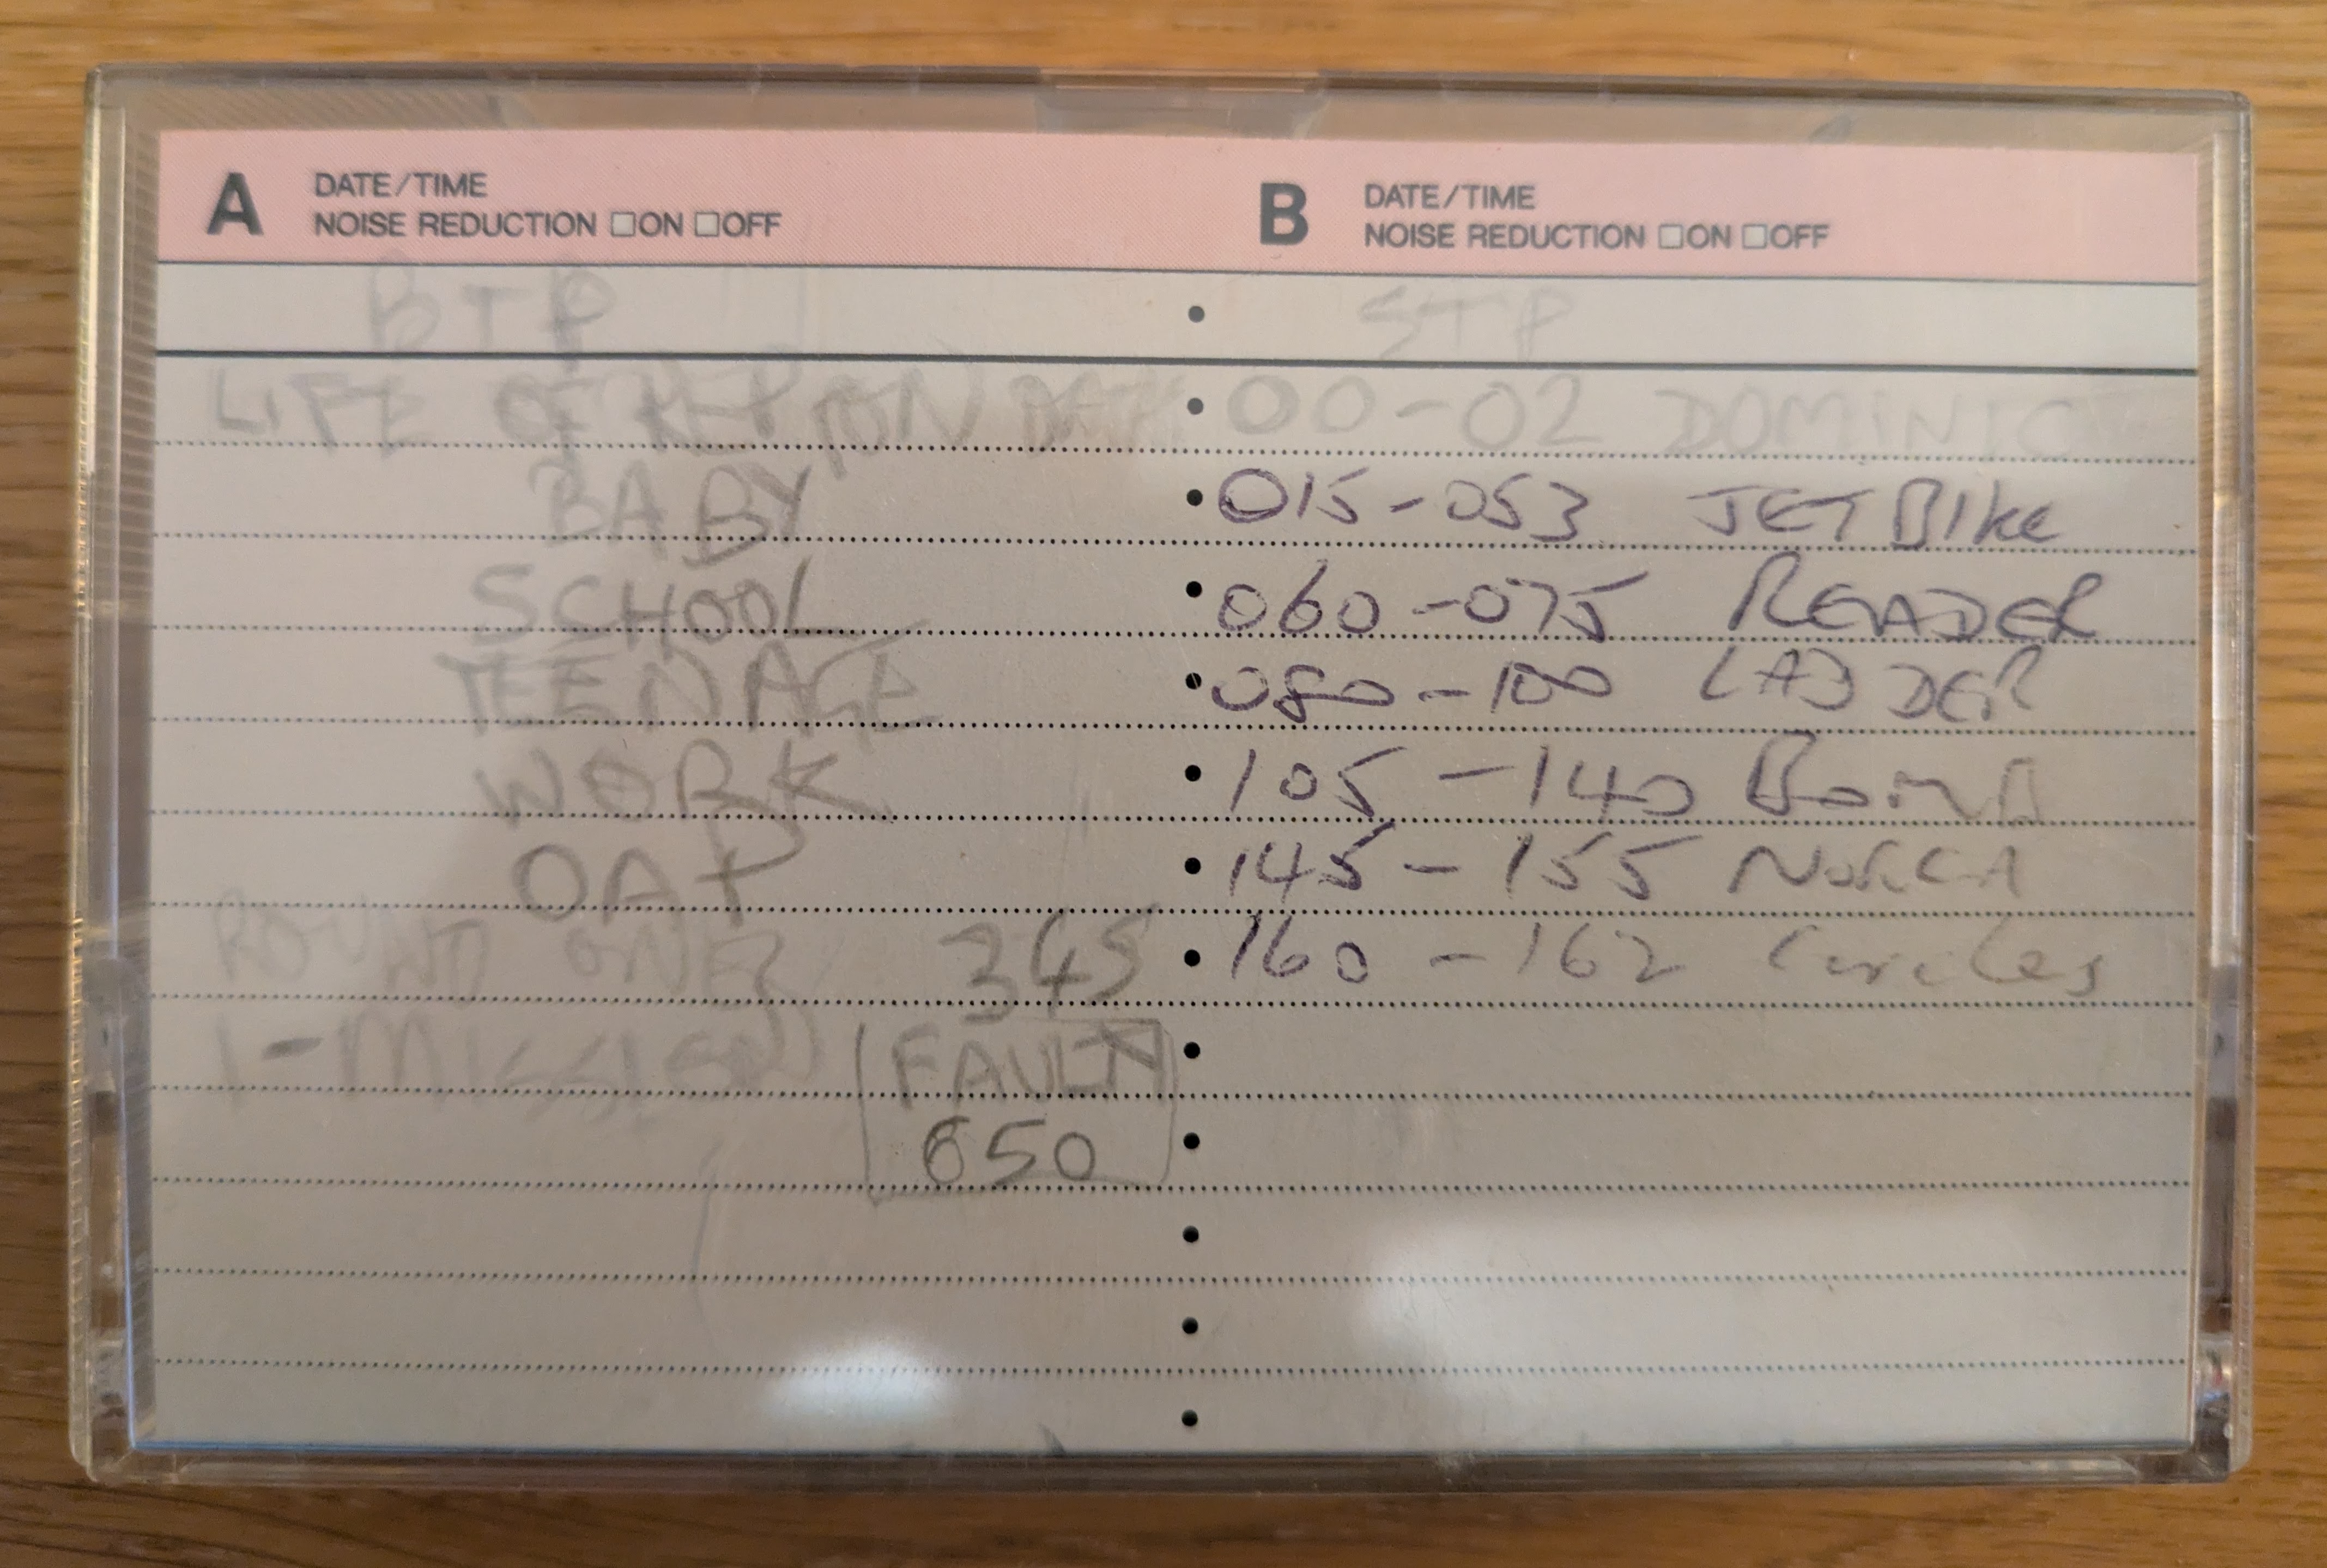 A DATE/TIME
NOISE REDUCTION ☐ON ☐OFF
BTP
LIFE OF
BABY
SCHOOL
TEENAGE
WORK
OAP
ROUND ONE 345
1-MISSION FAULTY
650
B DATE/TIME
NOISE REDUCTION ☐ON ☐OFF
STP
00-02 DOMINIC
015-053 JET BIKE
060-075 READER
080-100 LADDER
105-140
145-155
160-162 Circles